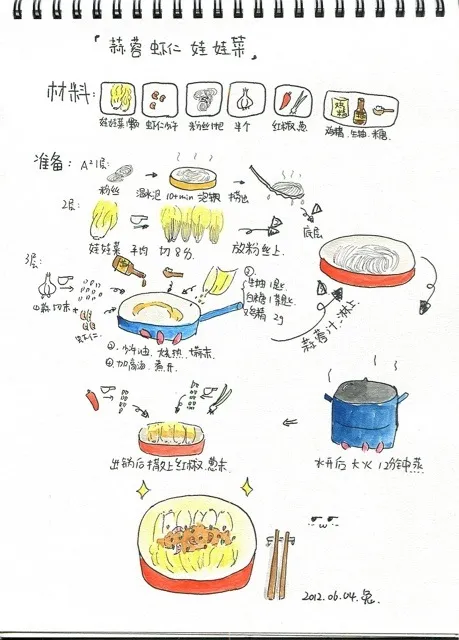 「蒜蓉虾仁娃娃菜」
材料:
娃娃菜1颗 虾仁少许 粉丝1把 半个 红椒.葱 鸡精.生抽.糖
准备: 1层:
粉丝 温水泡 10+min 泡软 捞出
2层:
娃娃菜 平均 切8分. 放粉丝上. 底层
3层:
切末 虾仁
生抽1匙
白糖1茶匙
鸡精 2g
蒜蓉汁.淋上
少许油.烧热.
加高汤.煮开
出锅后撒上红椒.葱末
水开后 大火 12分钟蒸
2012.06.04.兔.